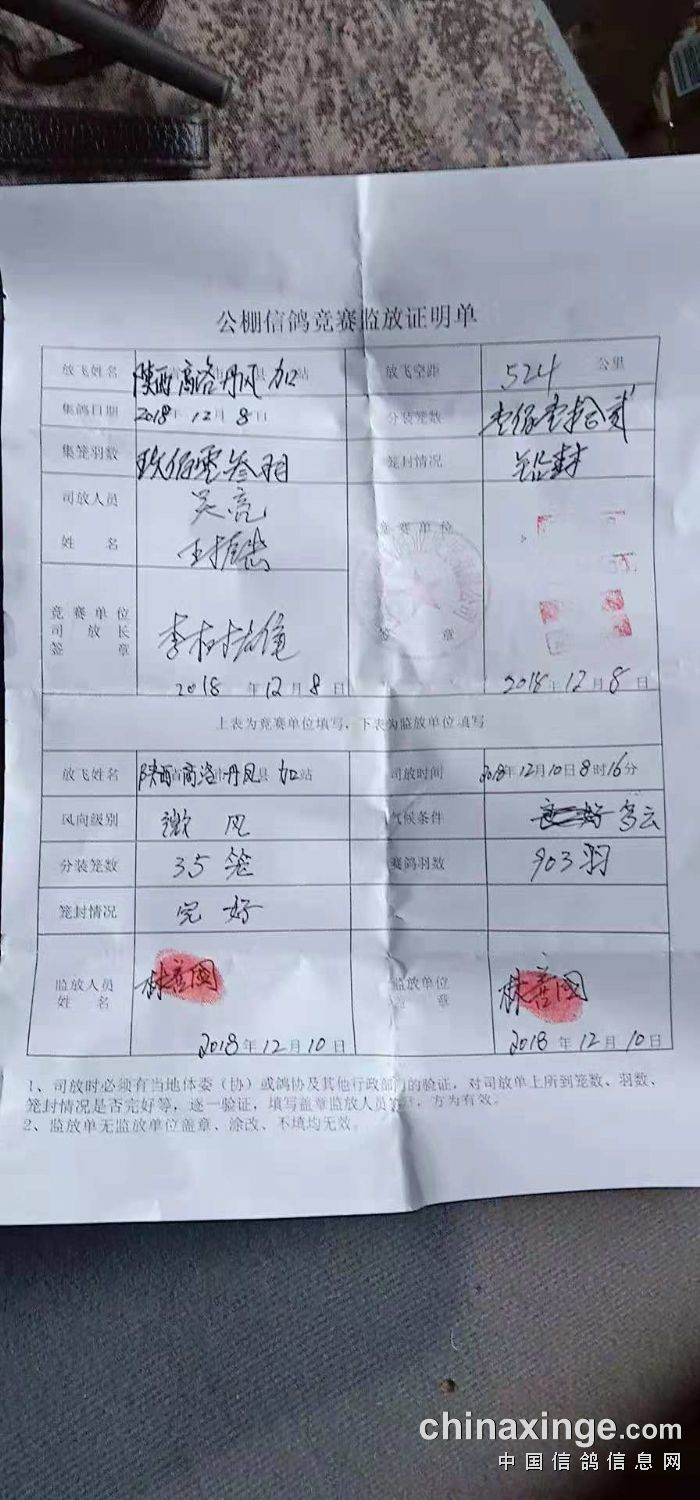 公棚信鸽竞赛监放证明单
放飞姓名 陕西省商洛市丹凤县 加站 放飞空距 524 公里
集鸽日期 2018年12月8日 分装笼数
集笼羽数 玖佰零叁羽 笼封情况 铅封
司放人员 姓名 吴亮
竞赛单位 签章
竞赛单位 司放长 签章
2018年12月8日 2018年12月8日
上表为竞赛单位填写，下表为监放单位填写
放飞姓名 陕西省商洛市丹凤县 加站 司放时间 2018年12月10日8时16分
风向级别 微风 气候条件 多云
分装笼数 35笼 赛鸽羽数 903羽
笼封情况 完好
监放人员 姓名 林善国 监放单位 签章 林善国
2018年12月10日 2018年12月10日
1、司放时必须有当地体委（协）或鸽协及其他行政部门的验证，对司放单上所到笼数、羽数、
笼封情况是否完好等，逐一验证，填写盖章监放人员签章，方为有效。
2、监放单无监放单位盖章、涂改、不填均无效。
chinaxinge.com
中国信鸽信息网